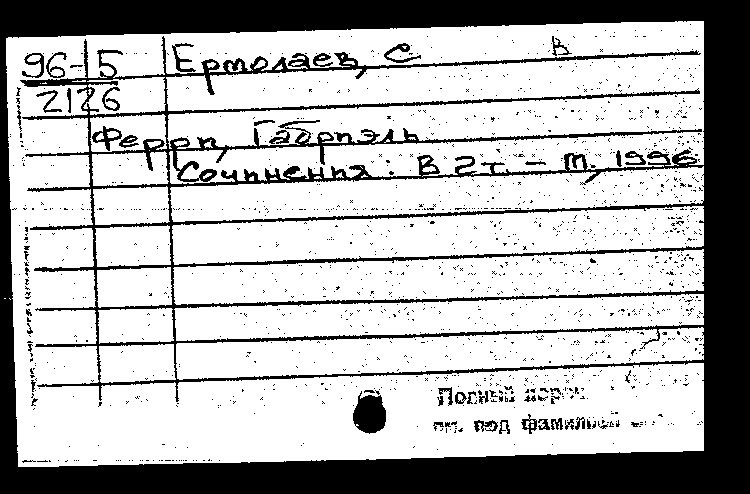 96-5 Ермолаев, С В
2126
Ферри, Габриэль
Сочинения: В 2 т. - М., 1996
Полный
см. под фамилией